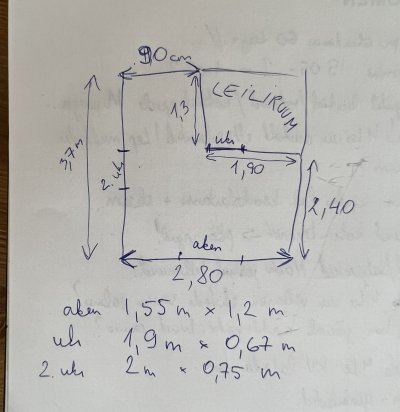 90 cm
LEILIRUUM
1,3
3,7 m
uks
1,90
2. uks
2,40
aken
2,80
aken 1,55 m × 1,2 m
uks 1,9 m × 0,67 m
2. uks 2 m × 0,75 m